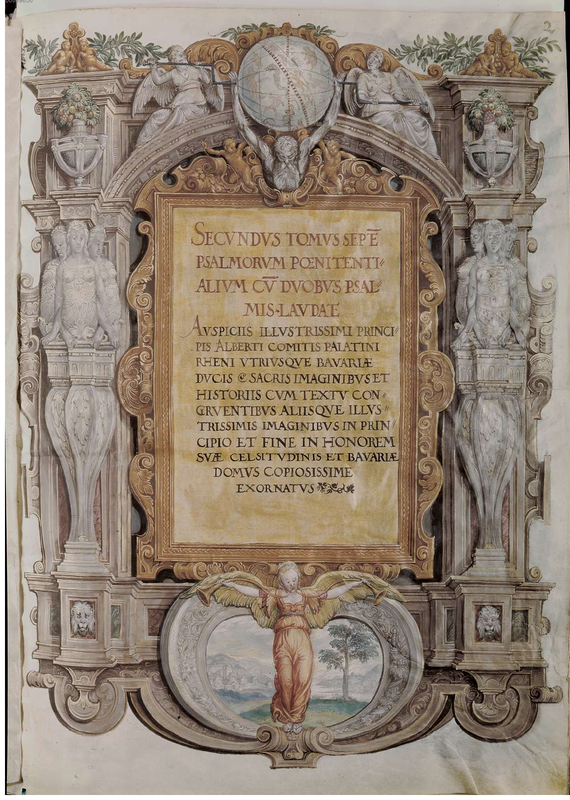 2
SECVNDVS TOMVS SEPTĒ
PSALMORVM PŒNITENTI=
ALIVM CV̄ DVOBVS PSAL=
MIS·LAVDATE
AVSPICIIS ILLVSTRISSIMI PRINCI
PIS ALBERTI COMITIS PALATINI
RHENI VTRIVSQVE BAVARIÆ
DVCIS & SACRIS IMAGINIBVS ET
HISTORIIS CVM TEXTV CON=
GRVENTIBVS ALIISQVE ILLVS=
TRISSIMIS IMAGINIBVS IN PRIN=
CIPIO ET FINE IN HONOREM
SVÆ CELSITVDINIS ET BAVARIÆ
DOMVS COPIOSISSIME
EXORNATVS